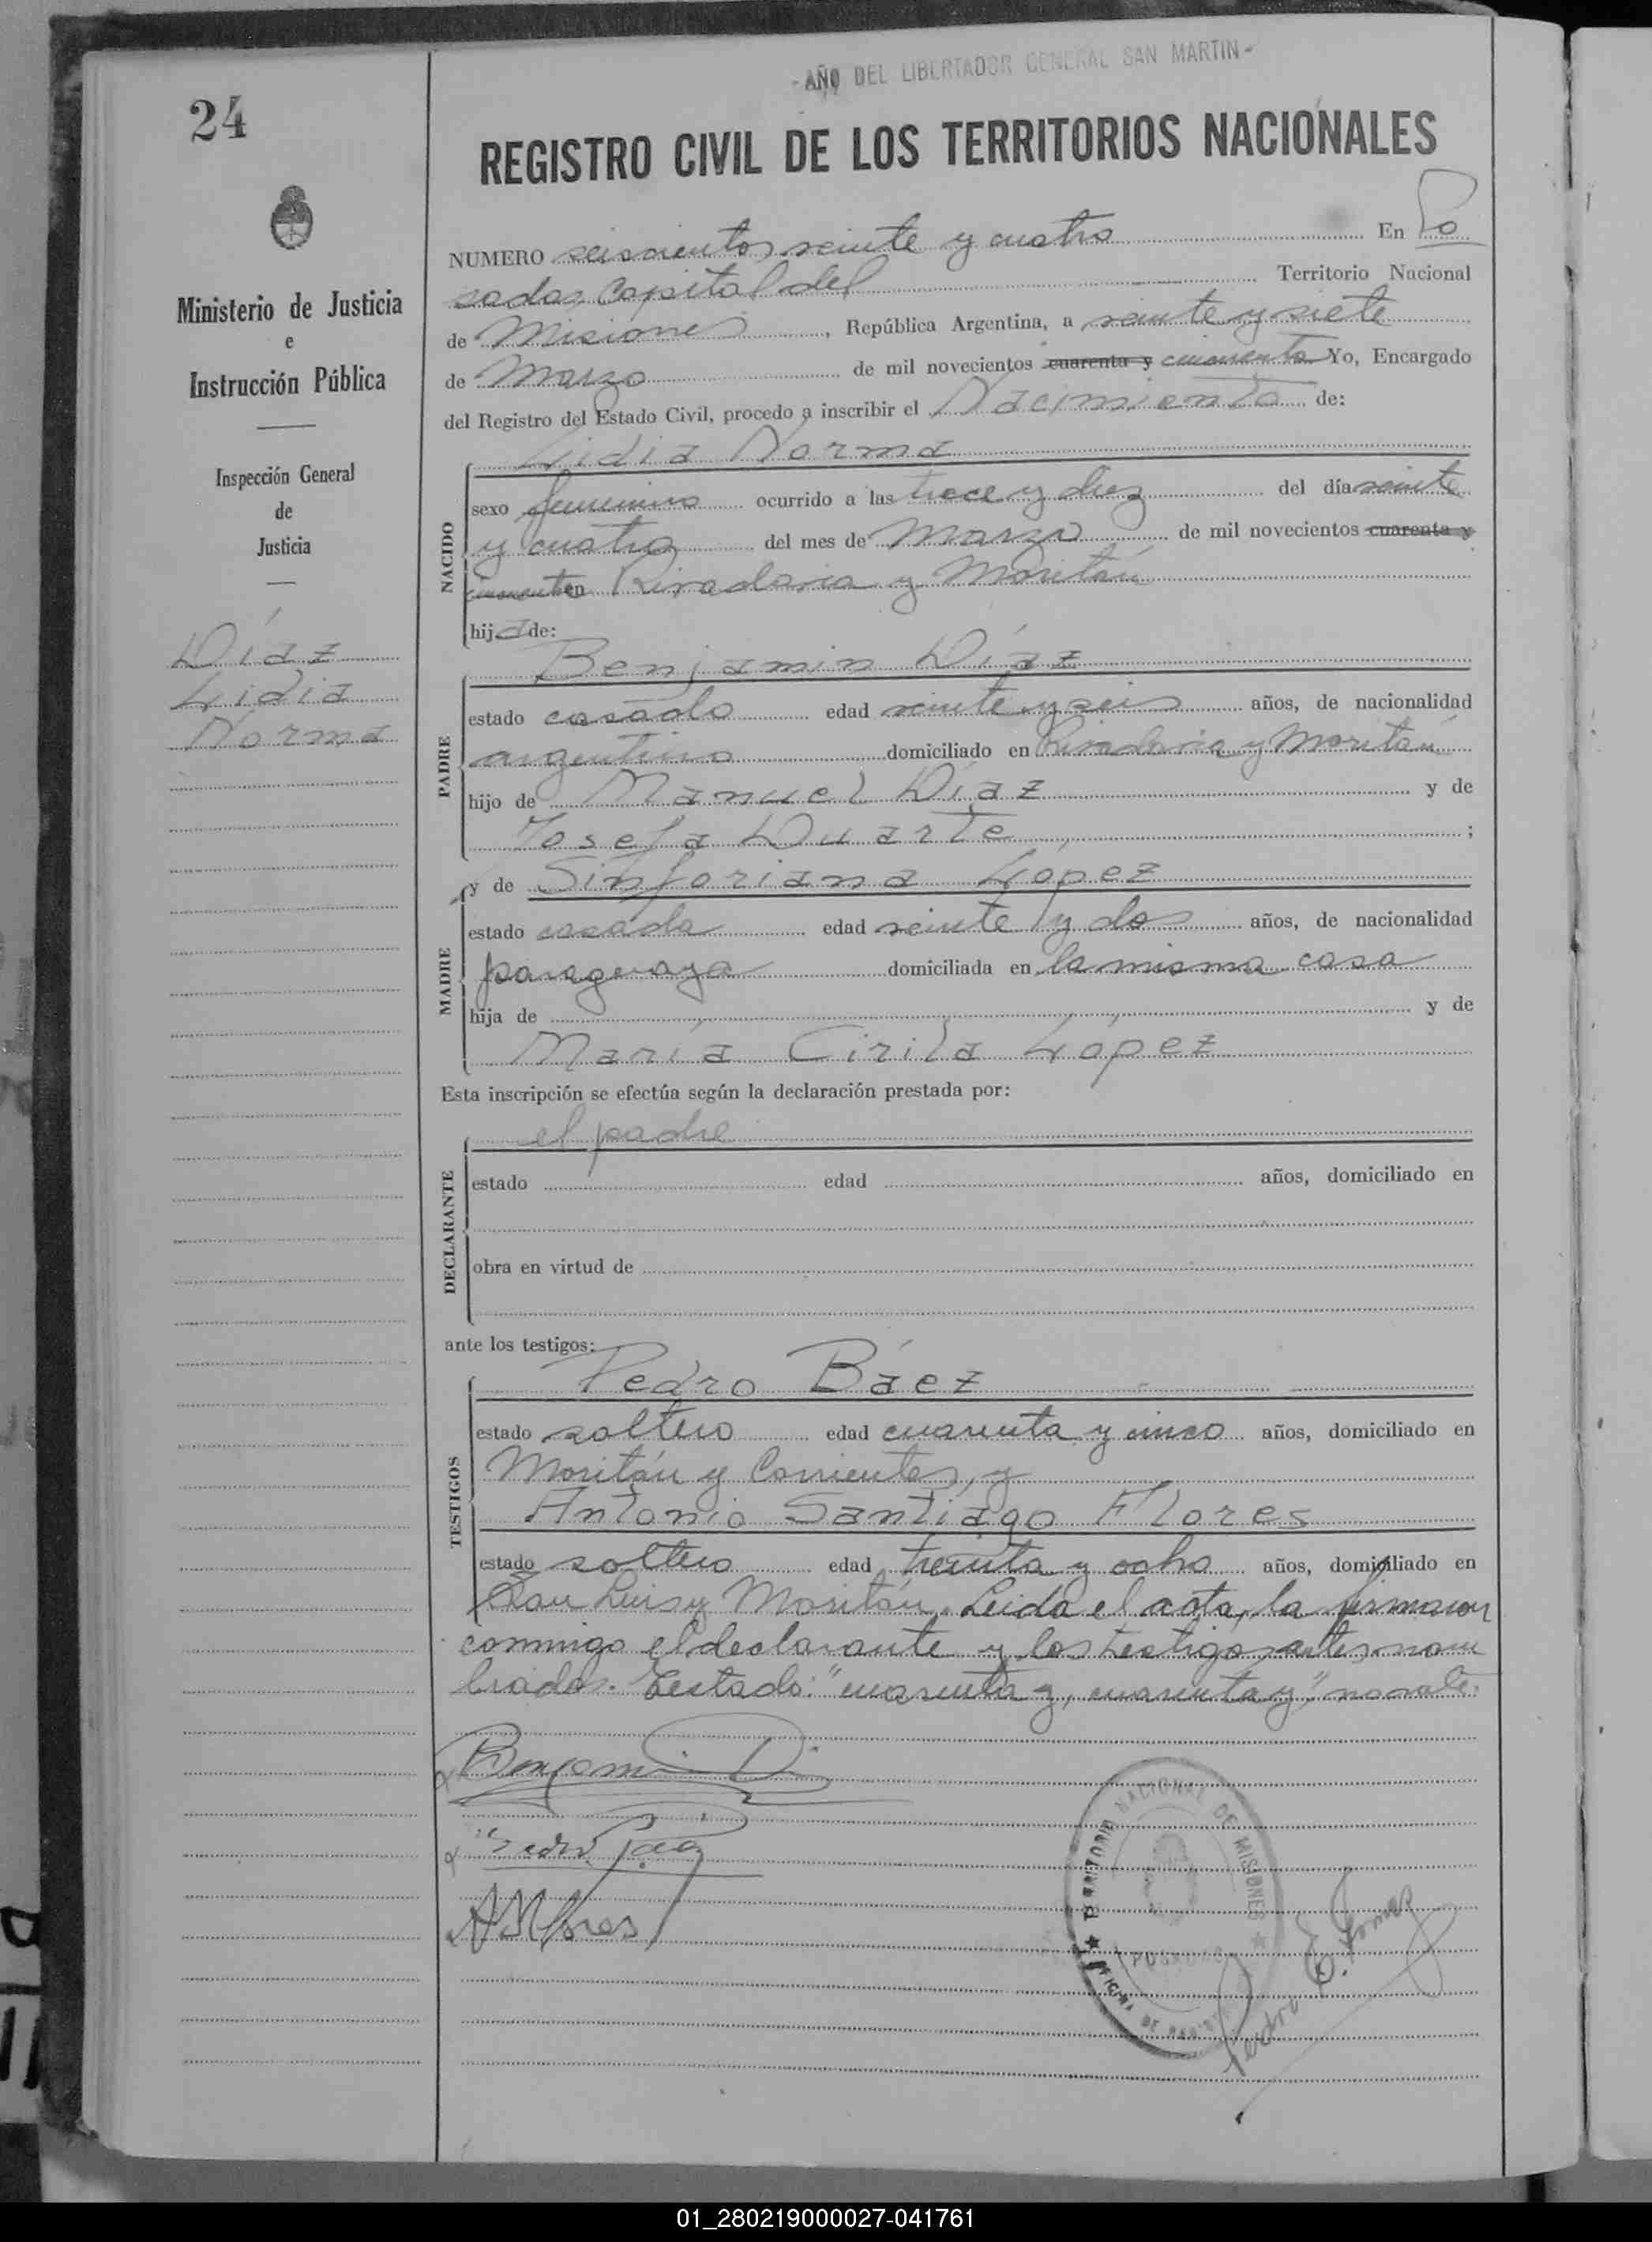 - AÑO DEL LIBERTADOR GENERAL SAN MARTIN -
24
REGISTRO CIVIL DE LOS TERRITORIOS NACIONALES
NUMERO seiscientos veinte y cuatro En Po
sadas, Capital del Territorio Nacional
de Misiones, República Argentina, a veinte y siete
de Marzo de mil novecientos cuarenta y cincuenta Yo, Encargado
del Registro del Estado Civil, procedo a inscribir el Nacimiento de:
Lidia Norma
Ministerio de Justicia
e
Instrucción Pública
Inspección General
de
Justicia
Díaz
Lidia
Norma
NACIDO
sexo femenino ocurrido a las trece y diez del día veinte
y cuatro del mes de Marzo de mil novecientos cuarenta y
cincuenta en Rivadavia y Moritán
hija de:
Benjamin Díaz
PADRE
estado casado edad veinte y seis años, de nacionalidad
argentino domiciliado en Rivadavia y Moritán
hijo de Manuel Díaz y de
Josefa Duarte ;
y de Sinforiana López
MADRE
estado casada edad veinte y dos años, de nacionalidad
paraguaya domiciliada en la misma casa
hija de y de
María Cirila López
Esta inscripción se efectúa según la declaración prestada por:
el padre
DECLARANTE
estado edad años, domiciliado en
obra en virtud de
ante los testigos:
Pedro Báez
TESTIGOS
estado soltero edad cuarenta y cinco años, domiciliado en
Moritán y Corrientes, y
Antonio Santiago Flores
estado soltero edad treinta y ocho años, domiciliado en
San Luis y Moritán. Leida el acta, la firmaron
conmigo el declarante y los testigos antes nom
brados. Testado: "cuarenta y, cuarenta y", no vale.
Benjamin D
Pedro Baez
A S Flores
TERRITORIO NACIONAL DE MISIONES
POSADAS
OFICINA DE REGISTRO
Pedro E. Gomez
01_280219000027-041761